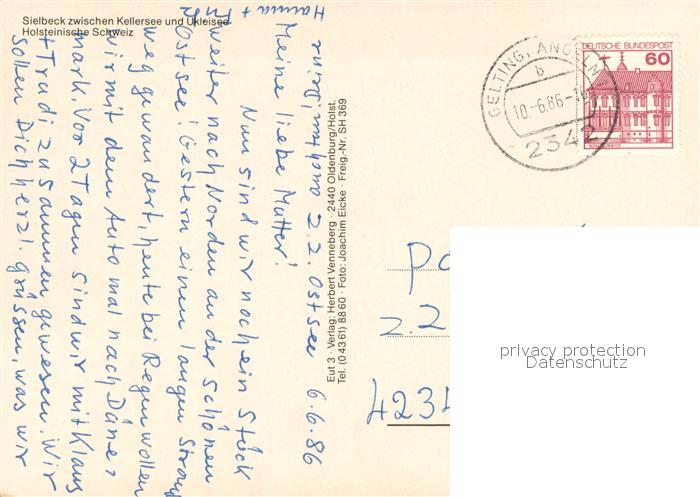 Sielbeck zwischen Kellersee und Ukleisee
Holsteinische Schweiz
z.Z. Ostsee 6.6.86
Meine liebe Mutter!
Nun sind wir noch ein Stück
weiter nach Norden an der schönen
Ostsee! Gestern einen langen Strand
weg gewandert, heute bei Regen wollen
wir mit dem Auto mal nach Däne-
mark. Vor 2 Tagen sind wir mit Klaus
+ Trudi zusammen gewesen. Wir
sollen Dich herzl. grüssen, was wir
Hanna +
Eut 3 · Verlag: Herbert Venneberg · 2440 Oldenburg/Holst.
Tel. (04361) 8860 · Foto: Joachim Eicke · Freig.-Nr. SH 369
GELTING, ANGELN
b
10.-6.86-16
2342
DEUTSCHE BUNDESPOST
60
z.Z
4234
privacy protection
Datenschutz